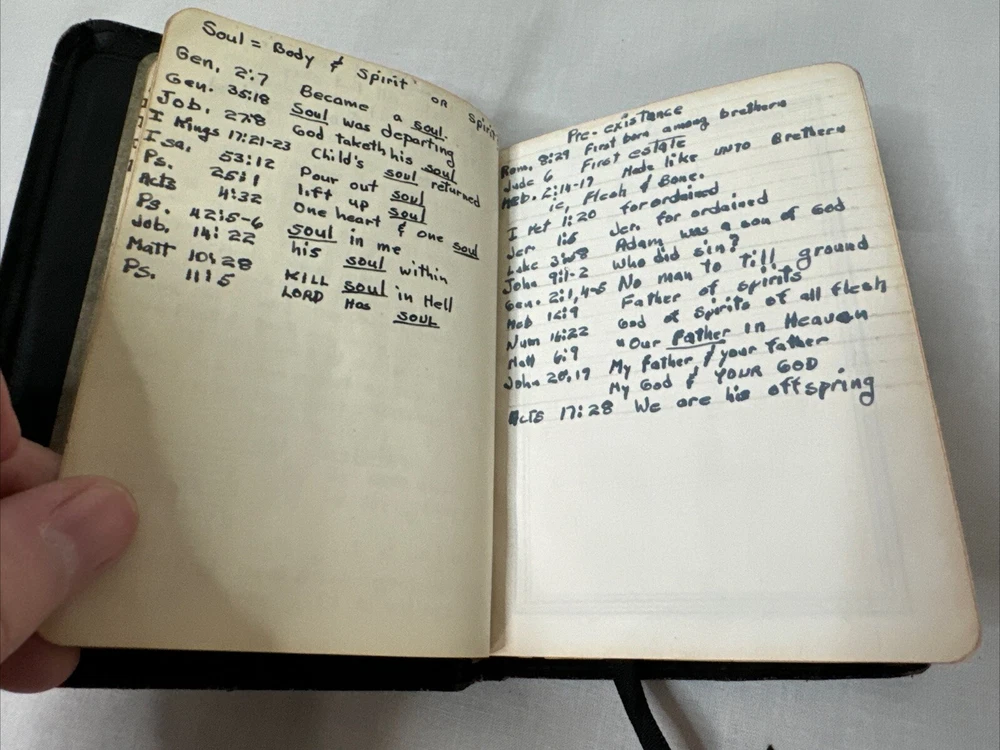 Soul = Body & Spirit OR Spirit
Gen. 2:7 Became a soul.
Gen. 35:18 Soul was departing
Job. 27:8 God taketh his soul
I Kings 17:21-23 Child's soul returned
Isa. 53:12 Pour out soul
Ps. 25:1 lift up soul
Acts 4:32 One heart & one soul
Ps. 42:5-6 soul in me
Job. 14:22 his soul within
Matt 10:28 KILL soul in Hell
Ps. 11:5 LORD Has SOUL
Pre-existance
Rom. 8:29 First born among brethern
Jude 6 First estate
Heb. 2:14-17 Made like UNTO Brethern
ie, Flesh & Bone.
I Pet 1:20 forordained
Jer. 1:5 Jer. for ordained
Luke 3:38 Adam was a son of God
John 9:1-2 Who did sin?
Gen. 2:1,4-5 No man to till ground
Heb 12:9 Father of spirits
Num 16:22 God of Spirits of all flesh
Matt 6:9 "Our Father in Heaven
John 20:17 My Father & your Father
My God & YOUR GOD
Acts 17:28 We are his offspring